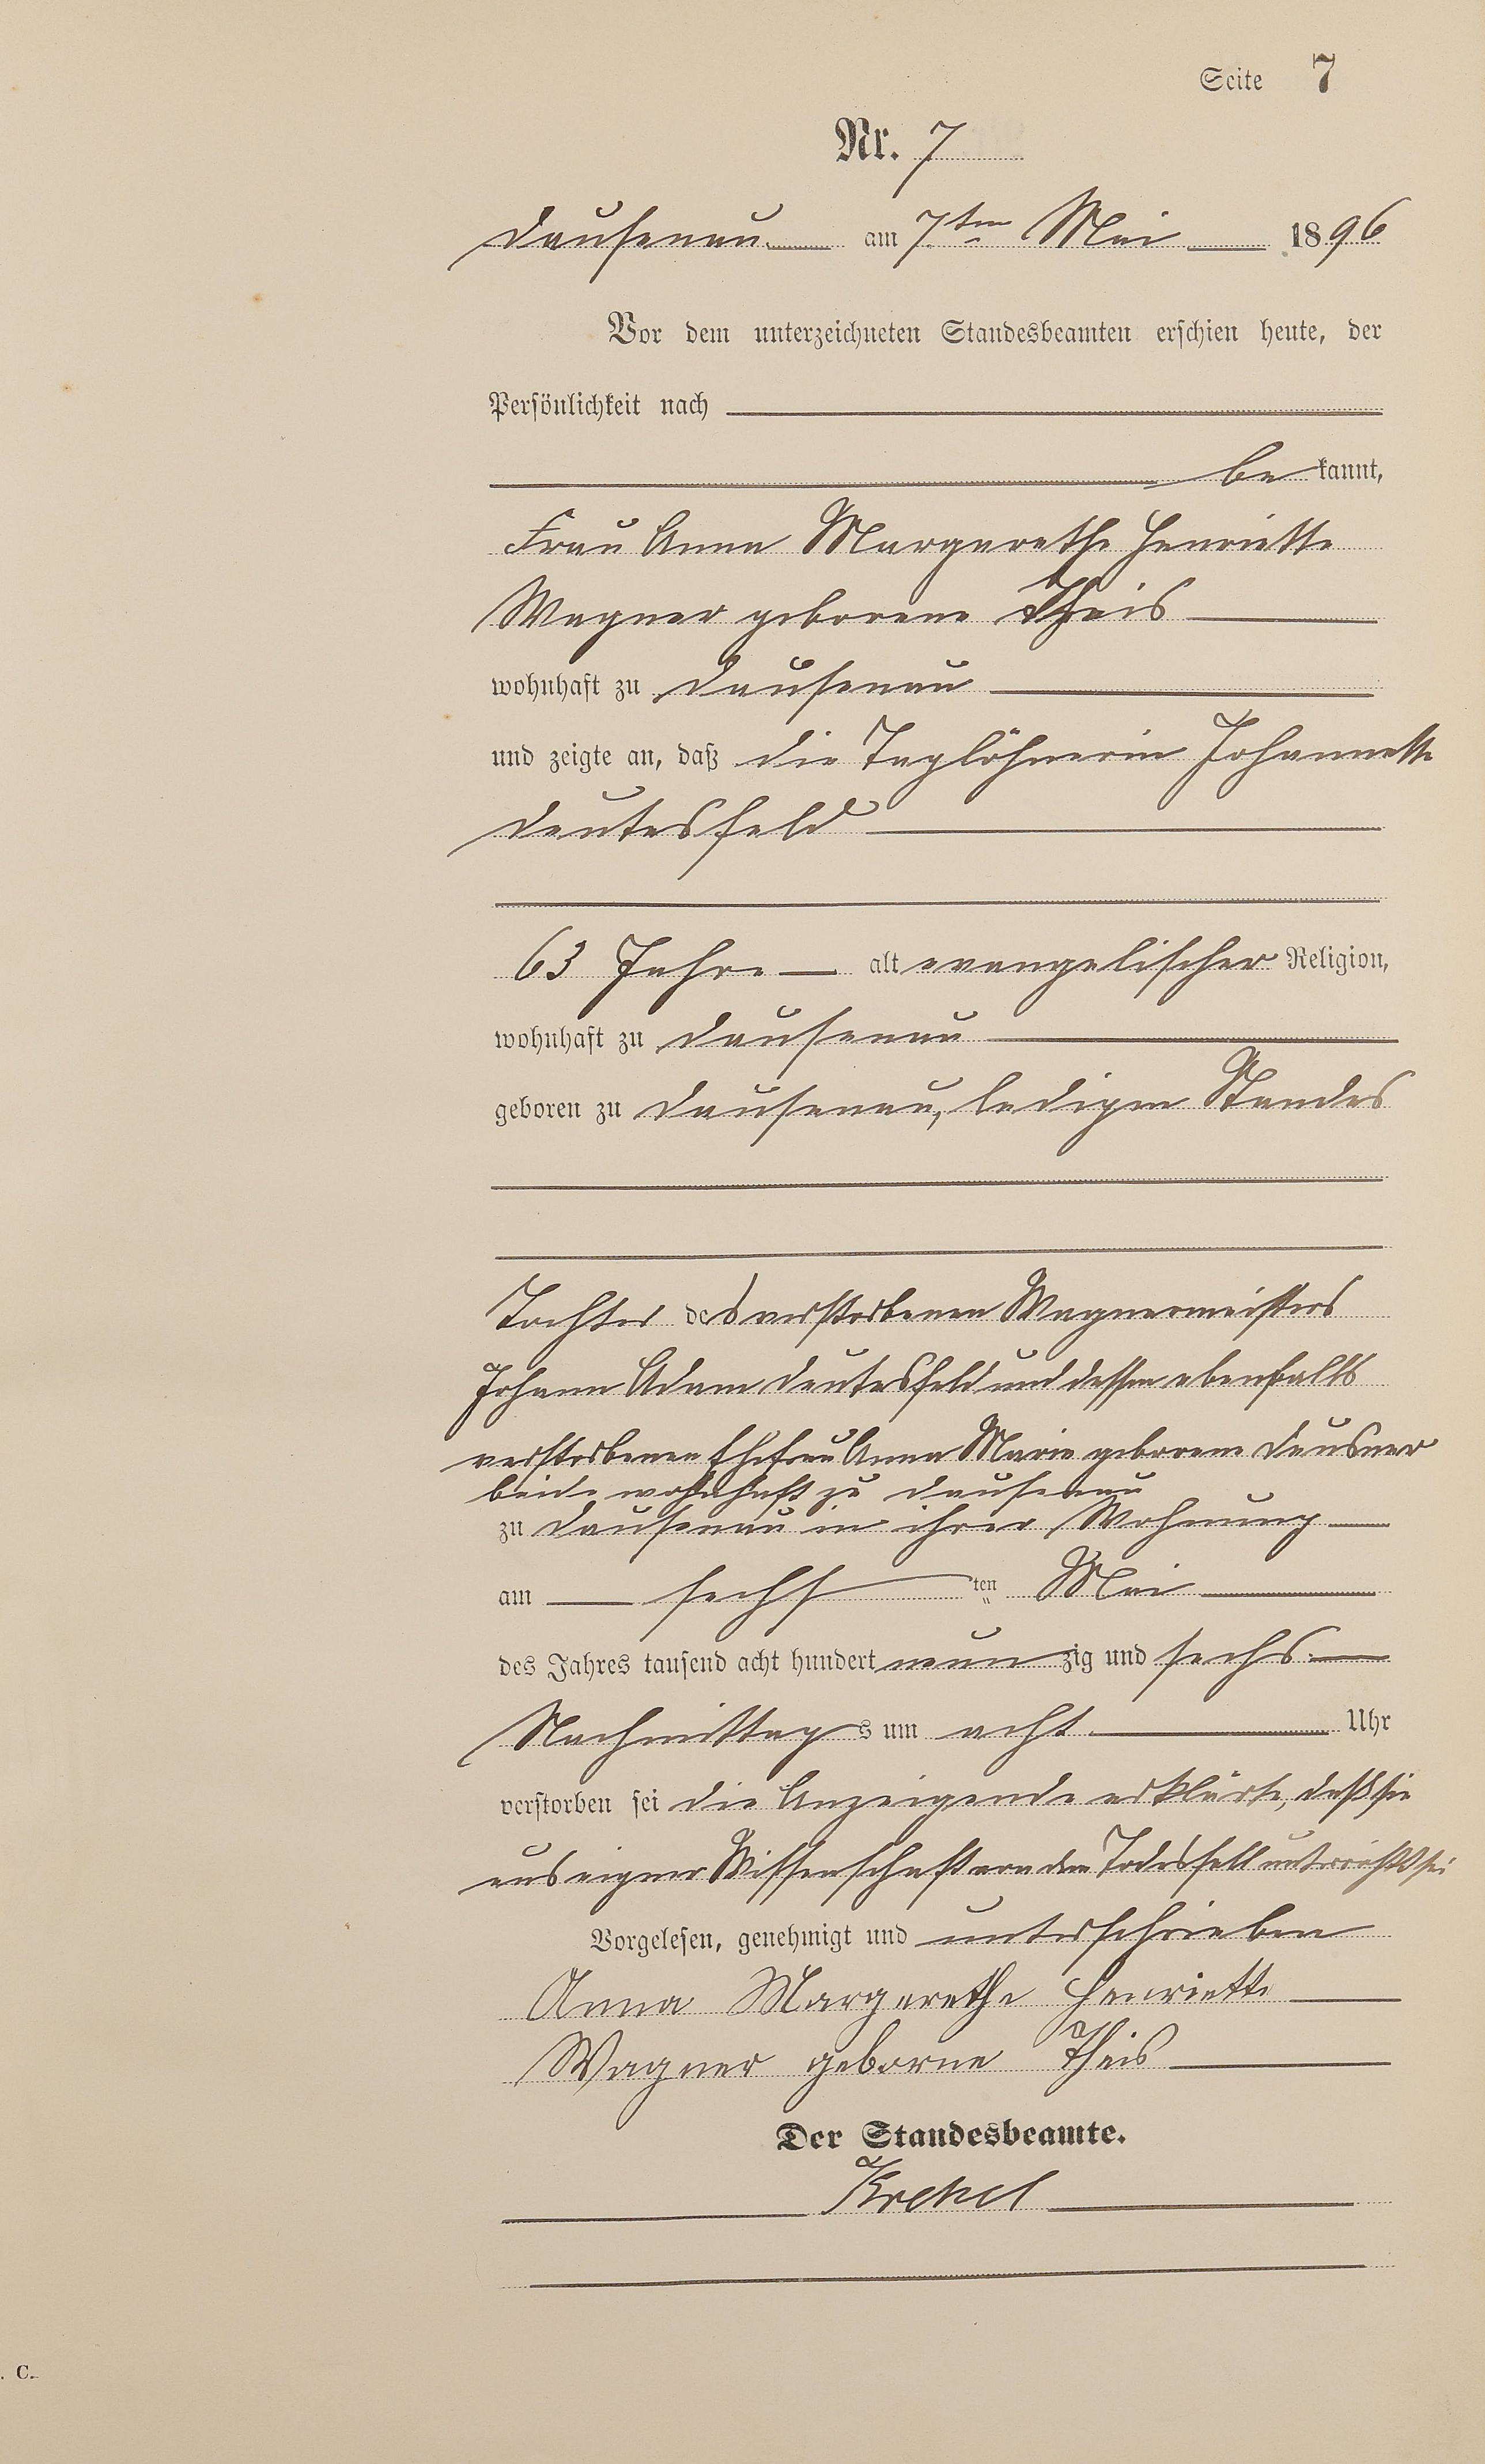 Seite 7
Nr. 7
Dausenau am 7ten Mai 1896
Vor dem unterzeichneten Standesbeamten erschien heute, der
Persönlichkeit nach
bekannt,
Frau Anna Margarethe Henriette
Wagner geborene Theis
wohnhaft zu Dausenau
und zeigte an, daß die Taglöhnerin Johannette
Deutesfeld
63 Jahre alt evangelischer Religion,
wohnhaft zu Dausenau
geboren zu Dausenau, ledigen Standes
Tochter des verstorbenen Wagnermeisters
Johann Adam Deutesfeld und dessen ebenfalls
verstorbenen Ehefrau Anna Marie geborene Deusner
beide wohnhaft zu Dausenau
zu Dausenau in ihrer Wohnung
am sechsten Mai
des Jahres tausend acht hundert neunzig und sechs
Nachmittags um acht Uhr
verstorben sei die Anzeigende erklärte, daß sie
aus eigner Wissenschaft von dem Todesfall unterrichtet sei
Vorgelesen, genehmigt und unterschrieben
Anna Margarethe Henriette
Wagner geborne Theis
Der Standesbeamte.
Krekel
. C.